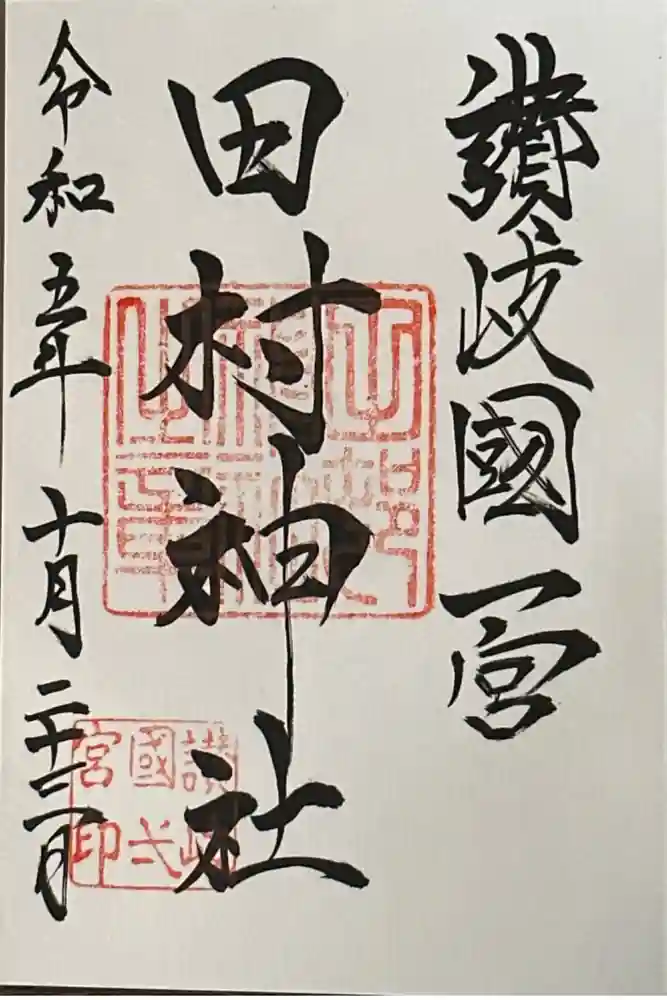 讃岐國一宮
田村神社
令和五年十月二十二日
讃岐
國弌
宮印